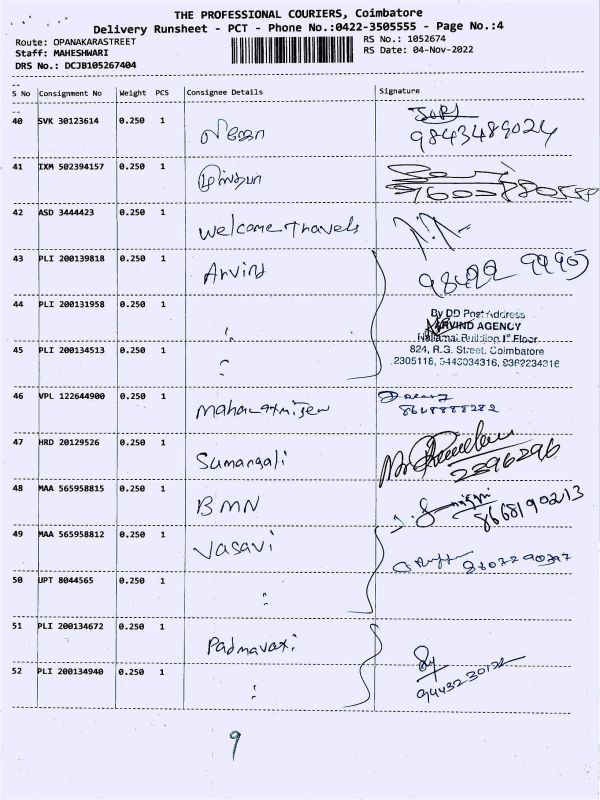 THE PROFESSIONAL COURIERS, Coimbatore
Delivery Runsheet - PCT - Phone No.:0422-3505555 - Page No.:4
Route: OPANAKARASTREET
RS No.: 1052674
Staff: MAHESHWARI
RS Date: 04-Nov-2022
DRS No.: DCJB105267404
S No Consignment No Weight PCS Consignee Details Signature
40 SVK 30123614 0.250 1
9843489024
41 IXM 502394157 0.250 1
42 ASD 3444423 0.250 1 Welcome Travels
43 PLI 200139818 0.250 1 Arvind
98422 99905
44 PLI 200131958 0.250 1 "
By DD Post Address
ARVIND AGENCY
Nallamai Building Iˢᵗ Floor
45 PLI 200134513 0.250 1 "
824, R.G. Street, Coimbatore
2305118, 9443034316, 9362234316
46 VPL 122644900 0.250 1
47 HRD 20129526 0.250 1 Sumangali
2396296
48 MAA 565958815 0.250 1 BMN
8668190213
49 MAA 565958812 0.250 1 Vasavi
50 UPT 8044565 0.250 1 "
51 PLI 200134672 0.250 1 Padmavaxi
52 PLI 200134940 0.250 1 "
9